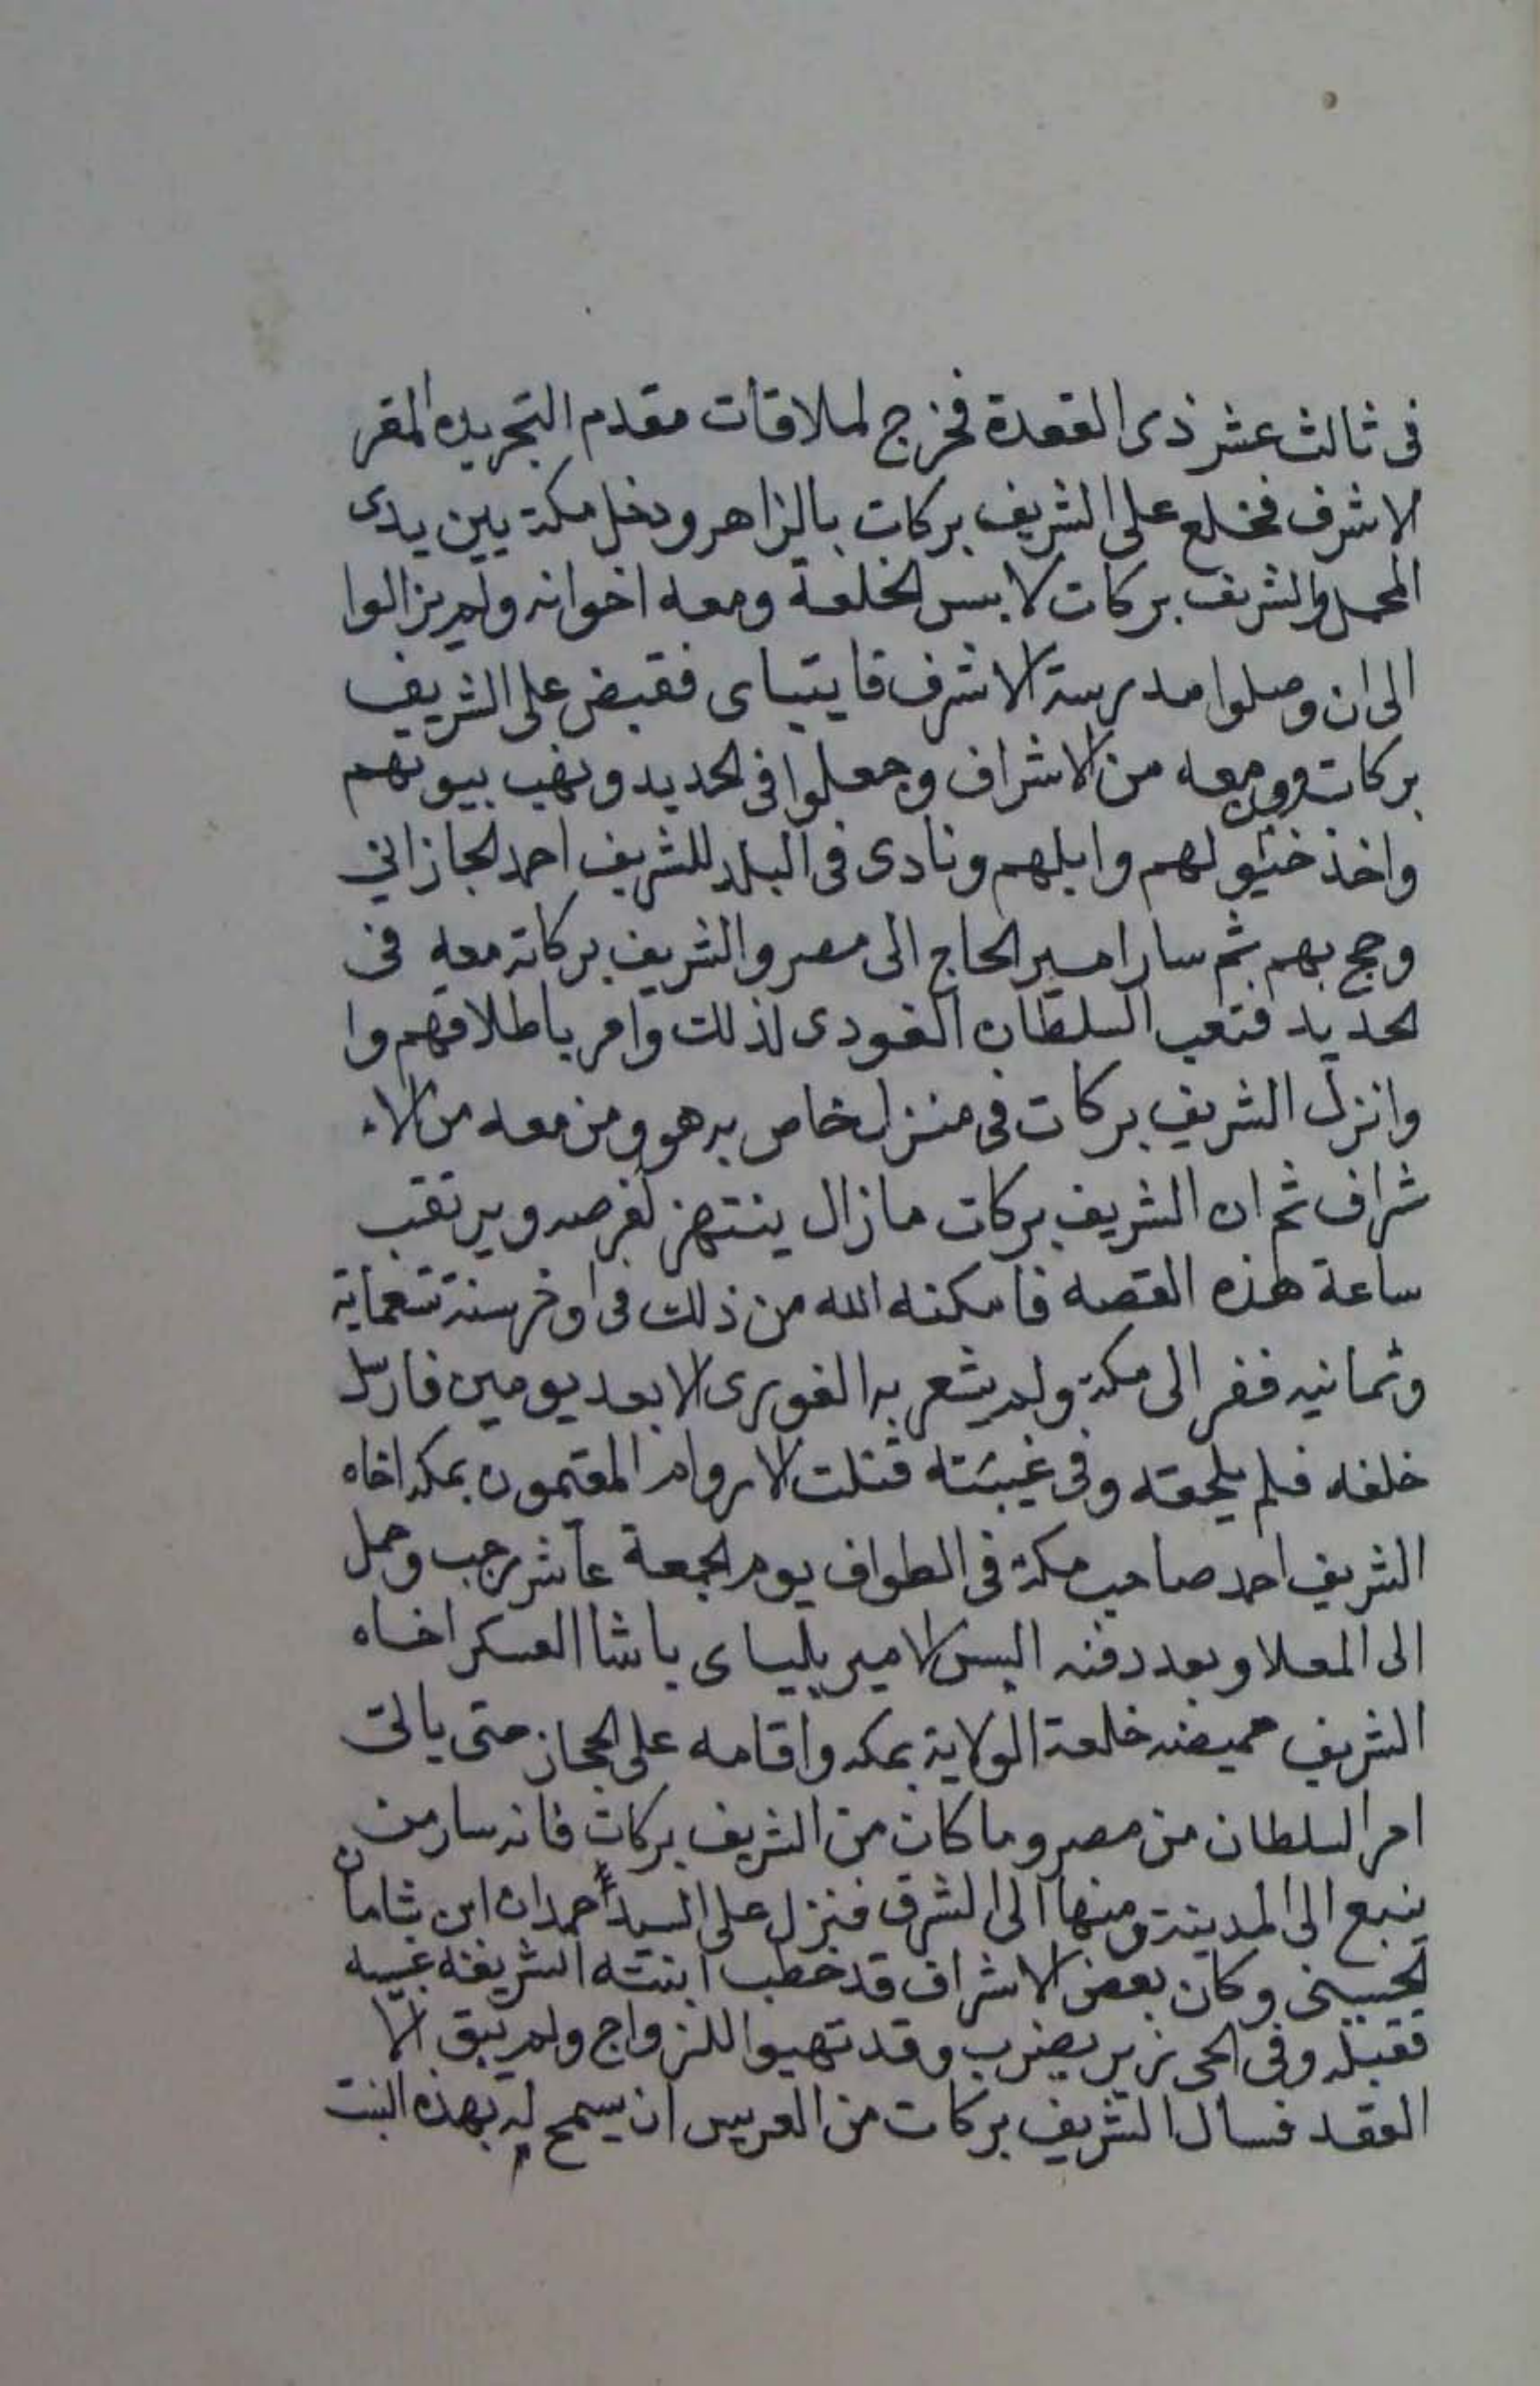 فى ثالث عشر ذى القعدة فخرج لملاقات مقدم التجريده المقر
الاشرف فخلع على الشريف بركات بالزاهر ودخل مكة بين يدى
المحمل والشريف بركات لابس الخلعة ومعه اخوانه ولم يزالوا
الى ان وصلوا مدرسة الاشرف قايتباى فقبض على الشريف
بركات ومن معه من الاشراف وجعلوا فى الحديد ونهب بيوتهم
واخذ خيولهم وابلهم ونادى فى البلد للشريف احمد الجازاني
وحج بهم ثم سار امير الحاج الى مصر والشريف بركات معه فى
لحديد فتعب السلطان الغورى لذلك وامر باطلاقهم وا
وانزل الشريف بركات فى منزل خاص به هو ومن معه من الا
شراف ثم ان الشريف بركات مازال ينتهز لفرصه ويرتقب
ساعة هذه القصه فامكنه الله من ذلك فى اوخر سنة تسعماية
وثمانيه ففر الى مكة ولم يشعر به الغورى الا بعد يومين فارسل
خلفه فلم يلحقه وفى غيبته قتلت الاروام المقيمون بمكه اخاه
الشريف احمد صاحب مكة فى الطواف يوم الجمعة عاشر رجب وحمل
الى المعلا وبعد دفنه البس الامير بلباى باشا العسكر اخاه
الشريف حميضه خلعة الولاية بمكه واقامه على الحجاز حتى ياتى
امر السلطان من مصر وما كان من الشريف بركات فانه سار من
ينبع الى المدينة ومنها الى الشرق فنزل على السيد احمدان ابن شامان
لحسينى وكان بعض الاشراف قد خطب ابنته الشريفه غبيه
فقبله وفى الحى زير يضرب وقد تهيوا للزواج ولم يبق الا
العقد فسال الشريف بركات من العريس ان يسمح له بهذه البنت